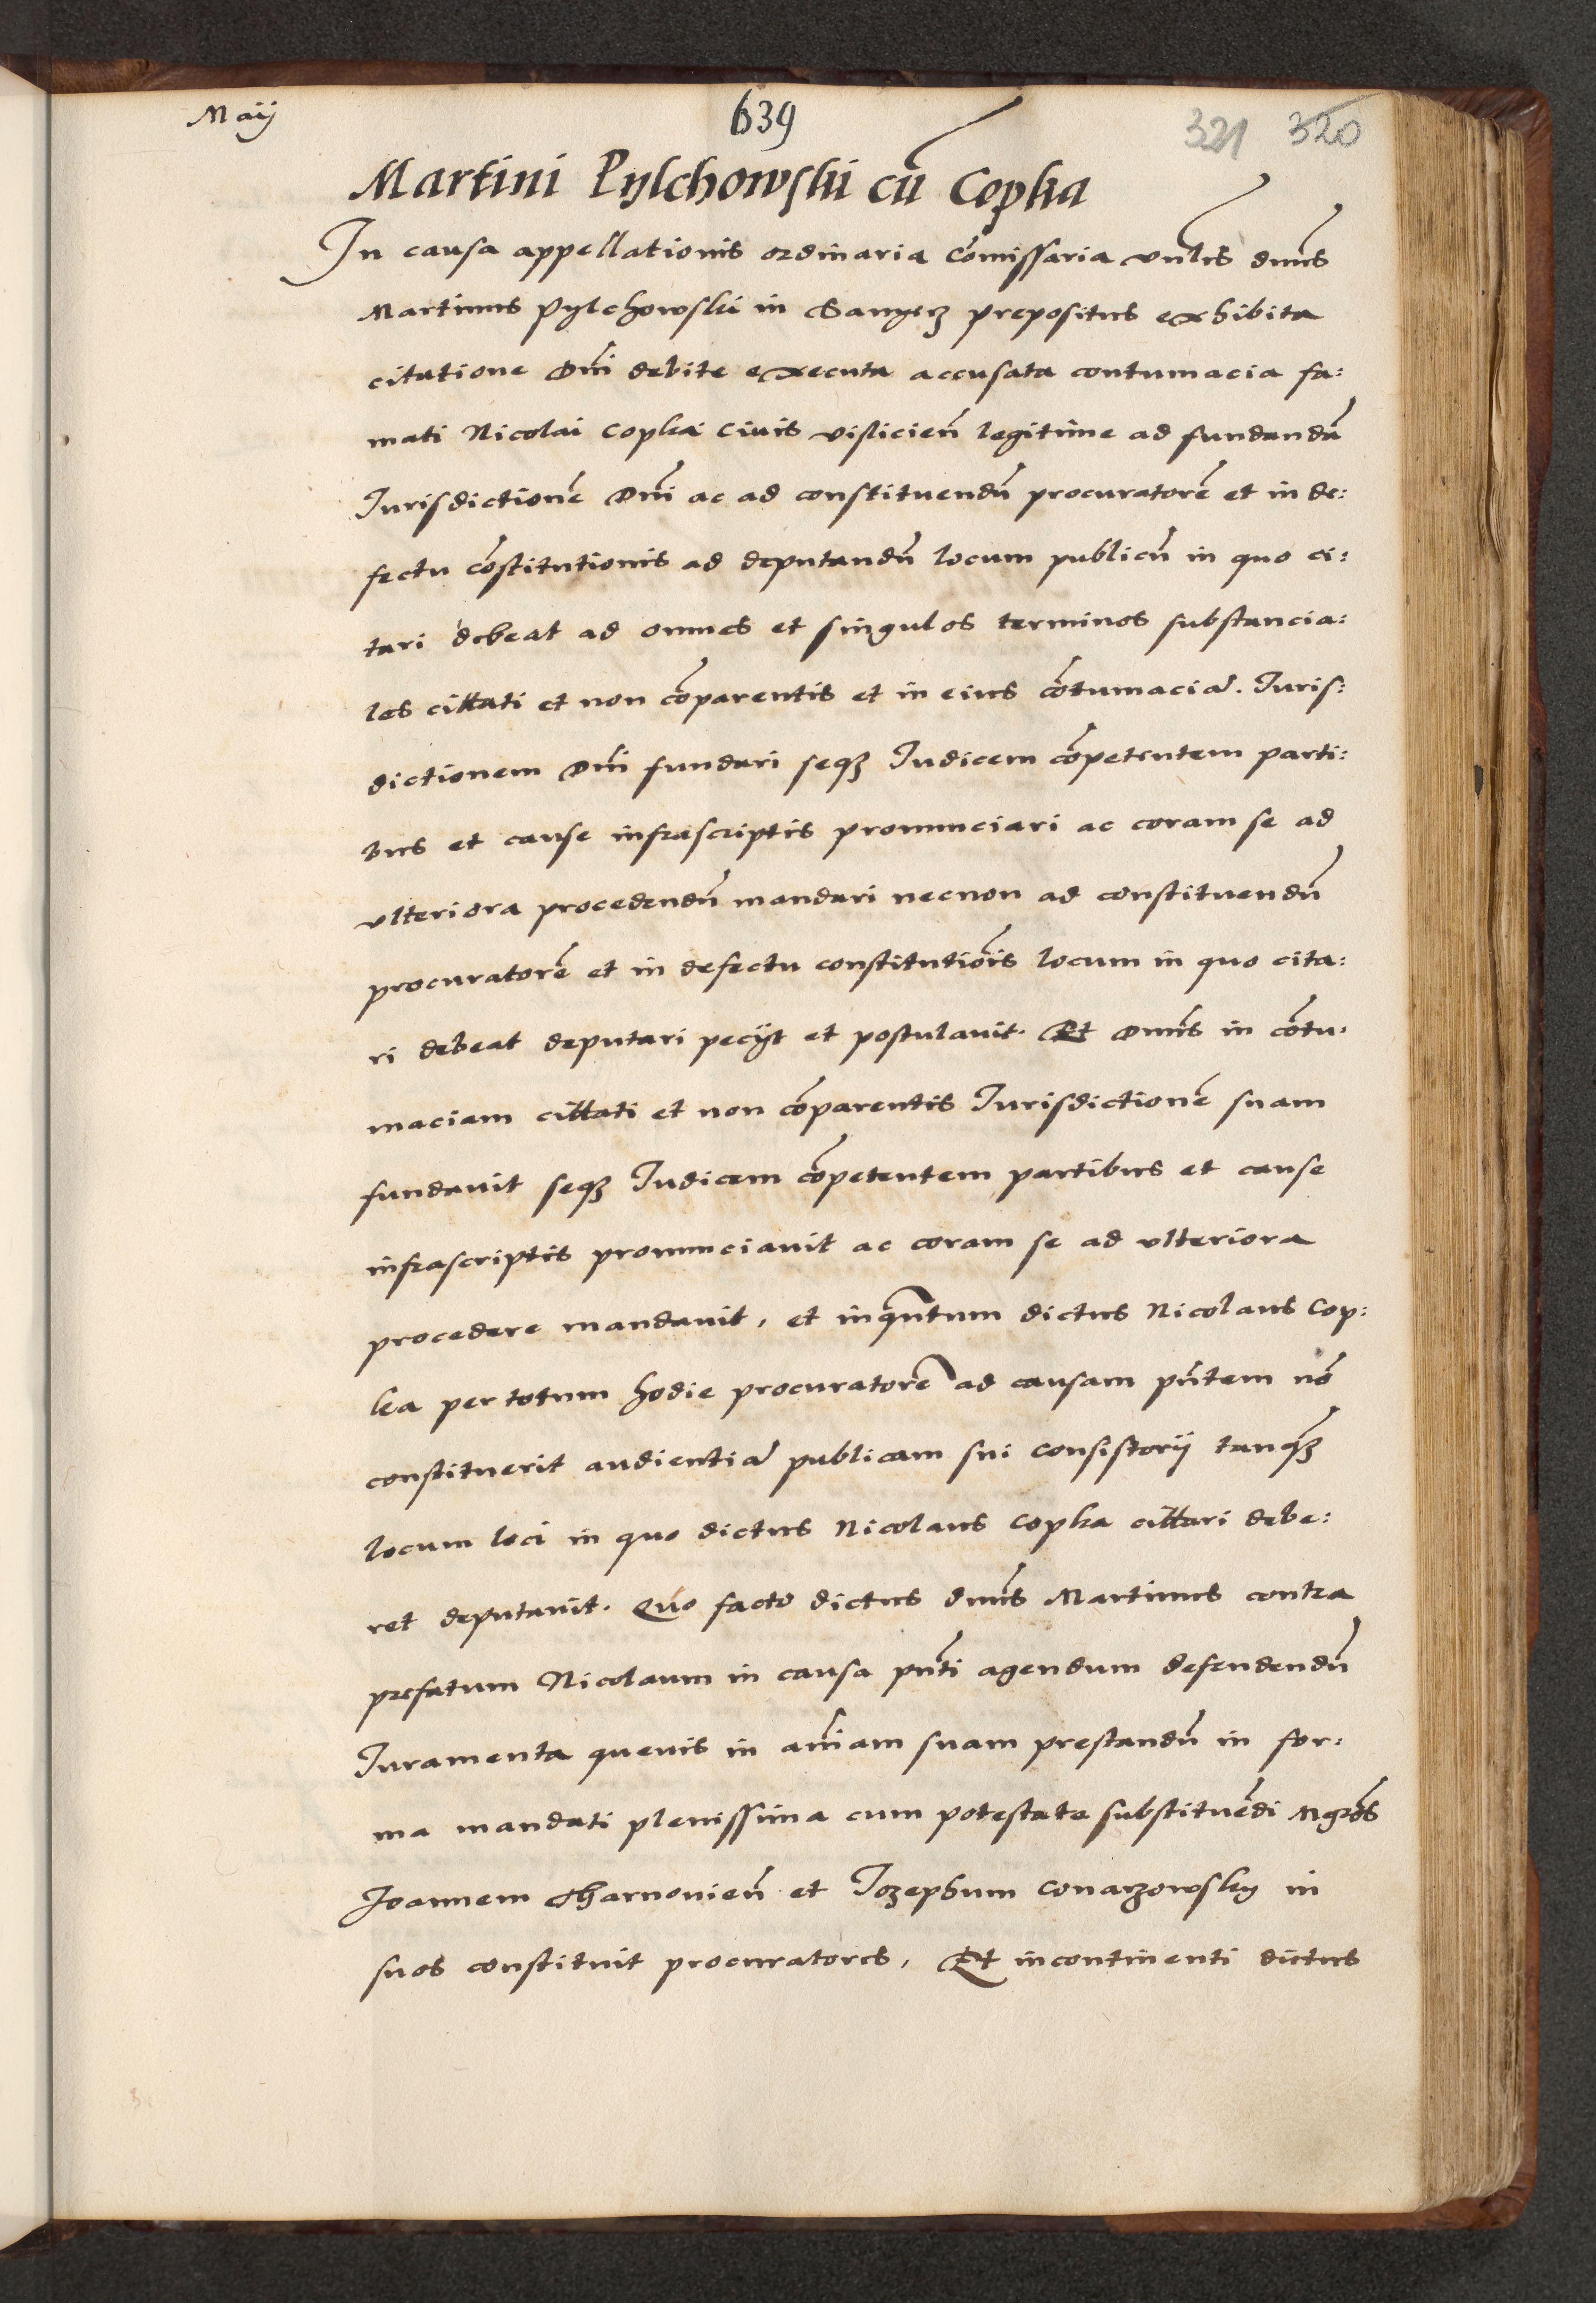 Maij
639
321 320
Martini Pylchowskii cū Copka
In causa appellationis ordinaria Cōmissaria vnl̄is dn̄us
Martinus Pylchowskii in Sanyerz prepositus exhibita
citatione Dn̄i debite executa accusata contumacia fa:
mati Nicolai Copka Ciuis visliciēn legitime ad fundandā
Iurisdictionē Dn̄i ac ad constituendū procuratorē et in de:
fectu cōstitutionis ad deputandū locum publicū in quo ci:
tari debeat ad omnes et singulos terminos substancia:
les cittati et non cōparentis et in eius cōtumaciā. Iuris:
dictionem Dn̄i fundari seqȝ Iudicem cōpetentem parti:
bus et cause infrascriptis pronunciari ac coram se ad
vlteriora procedendū mandari necnon ad constituendū
procuratorē et in defectu constitutiōis locum in quo cita:
ri debeat deputari pecijt et postulauit. Et Dn̄us in cōtu:
maciam cittati et non cōparentis Iurisdictionē suam
fundauit seqȝ Iudicem cōpetentem partibus et cause
infrascriptis pronunciauit ac coram se ad vlteriora
procedere mandauit, et inqn̄tum dictus Nicolaus Cop:
ka per totum hodie procuratorē ad causam pn̄tem nō
constituerit audientiā publicam sui Consistorij tanqȝ
locum loci in quo dictus Nicolaus Copka cittari debe:
ret deputauit. Quo facto dictus dn̄us Martinus contra
prefatum Nicolaum in causa pn̄ti agendum defendendū
Iuramenta queuis in aīam suam prestandū in for:
ma mandati plenissima cum potestate substituēdi Mgr̄os
Joannem Tharnouiēn et Iozephum Conarzowsky in
suos constituit procuratores, Et incontinenti dictus